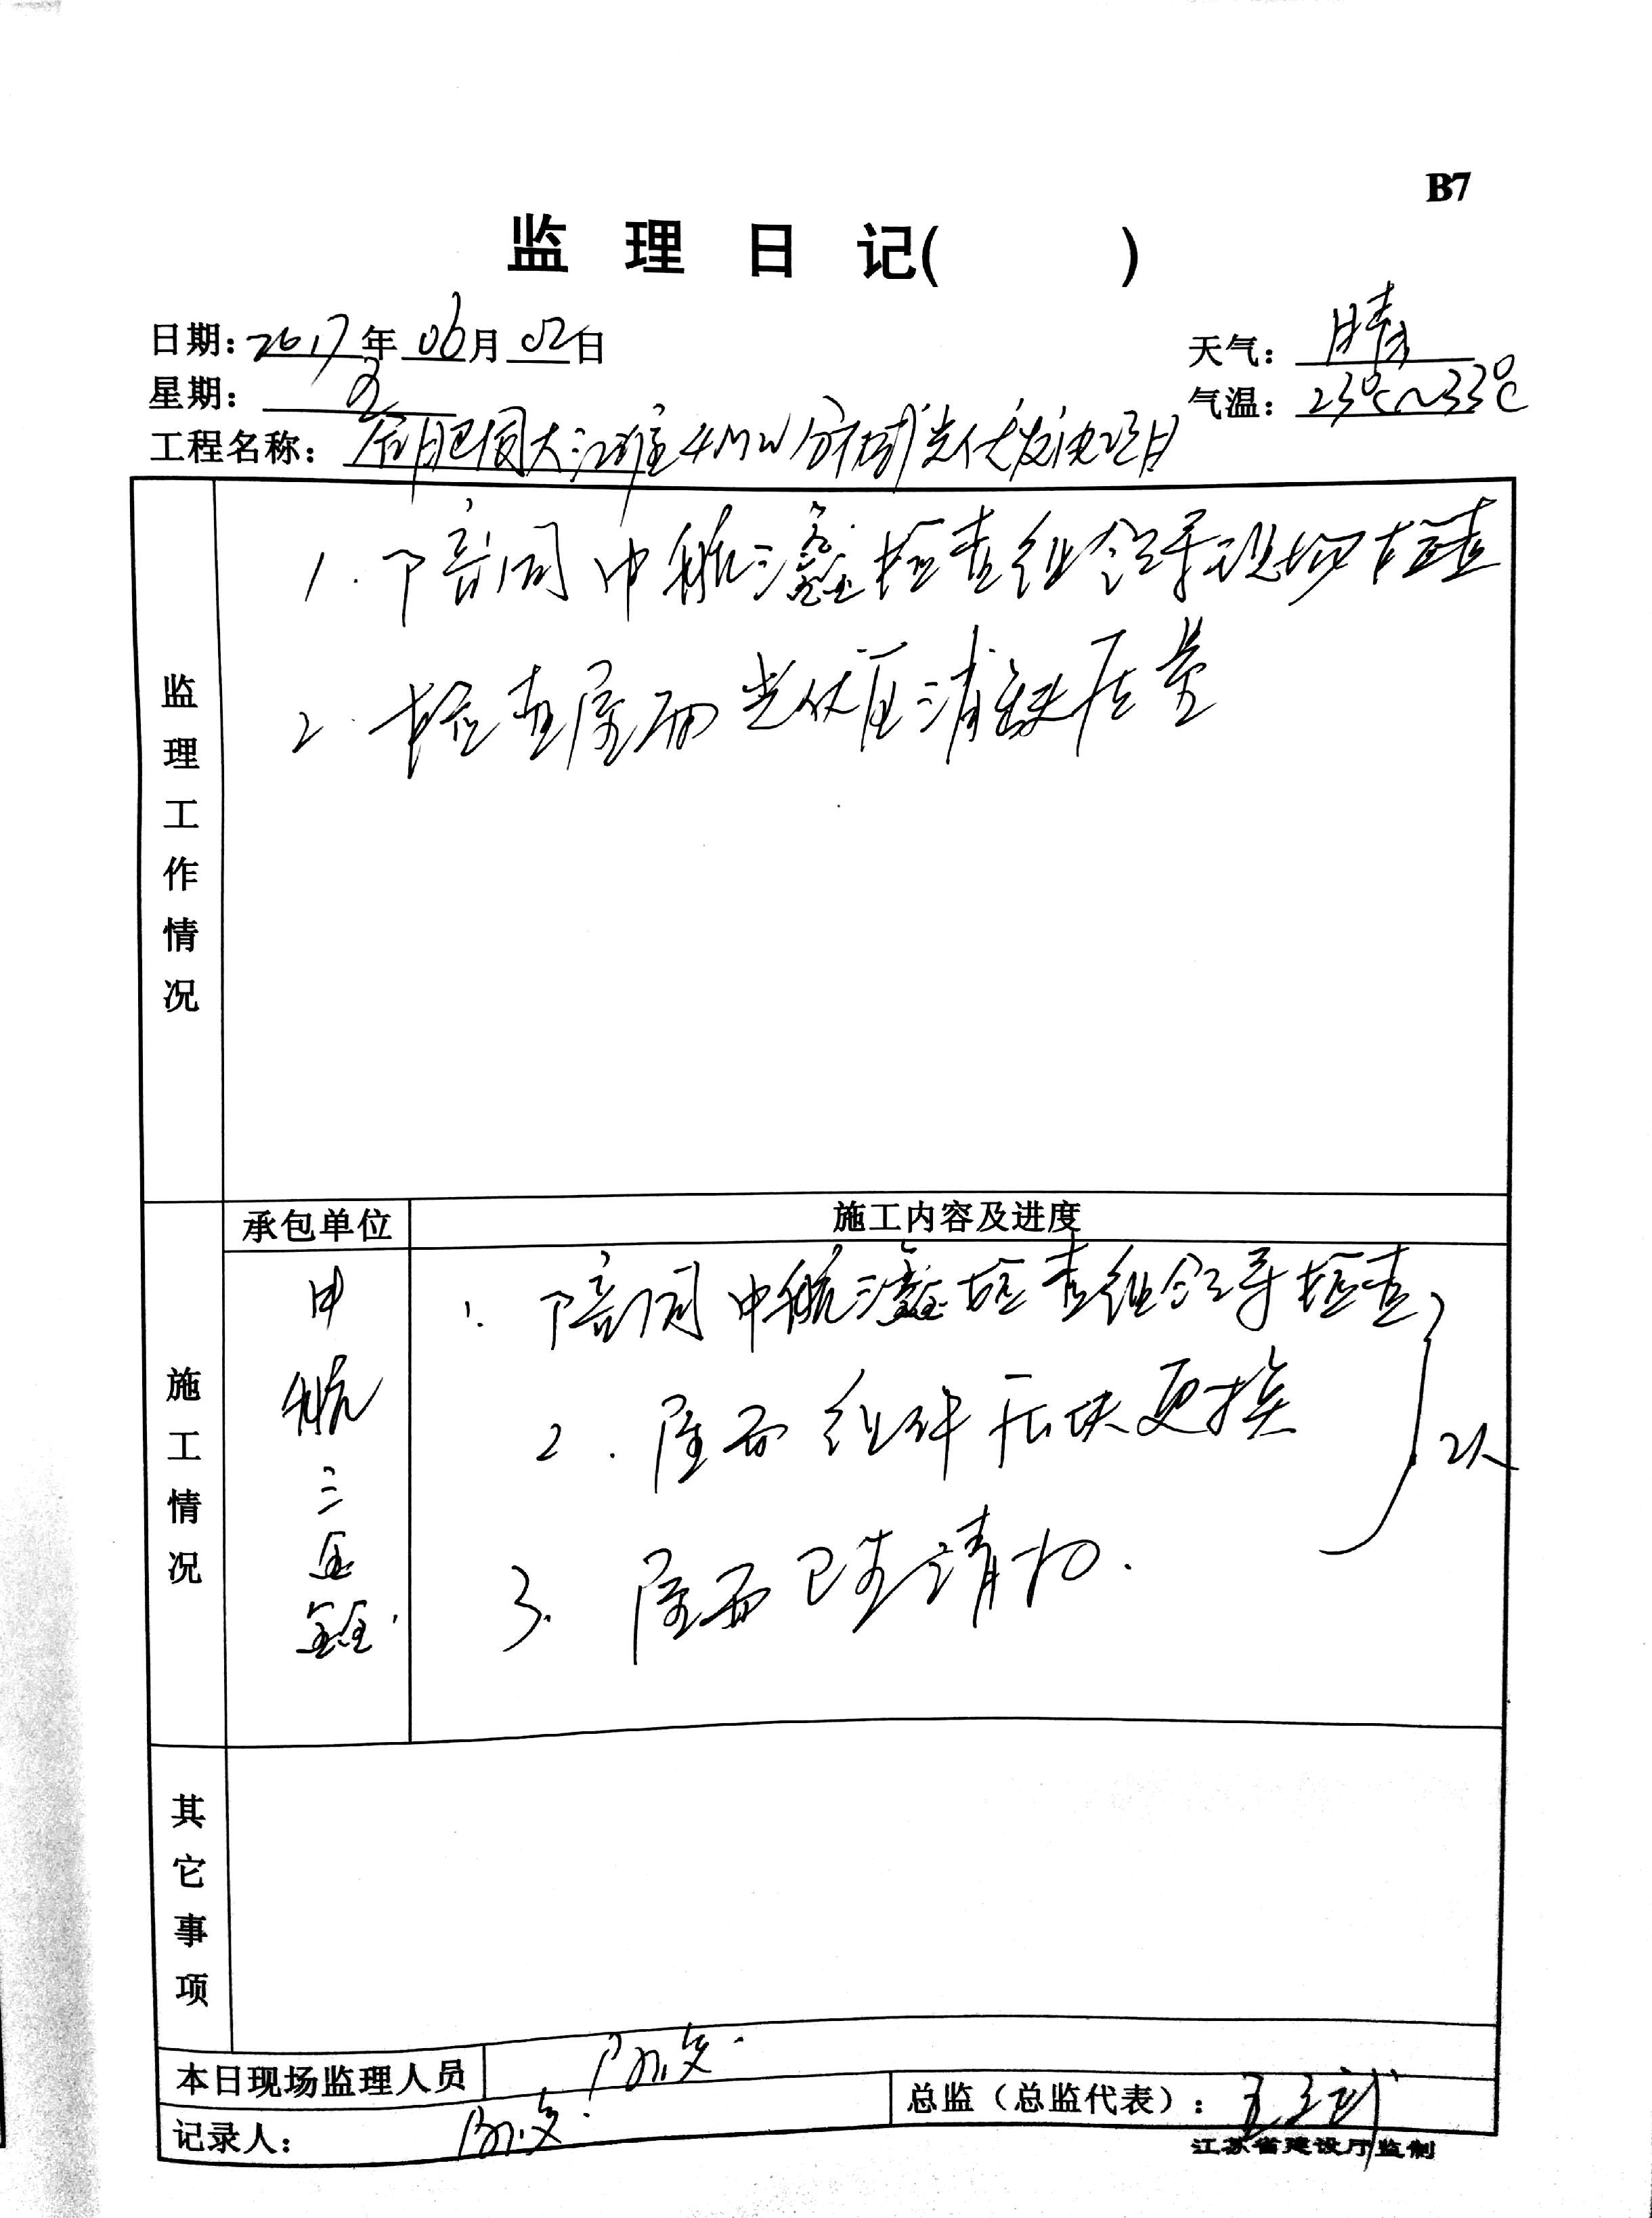 B7
监理日记( )
日期：2017年06月02日
天气：晴
星期：五
气温：23℃~33℃
工程名称：合肥周大江淮4MW分布式光伏发电项目
监理工作情况
1.陪同中航三鑫检查组领导现场检查
2.检查屋面光伏区消缺质量
承包单位
施工内容及进度
施工情况
中航三鑫
1.陪同中航三鑫检查组领导检查
2.屋面组件压块更换
2人
3.屋面卫生清扫.
其它事项
本日现场监理人员
总监（总监代表）：
记录人：
江苏省建设厅监制